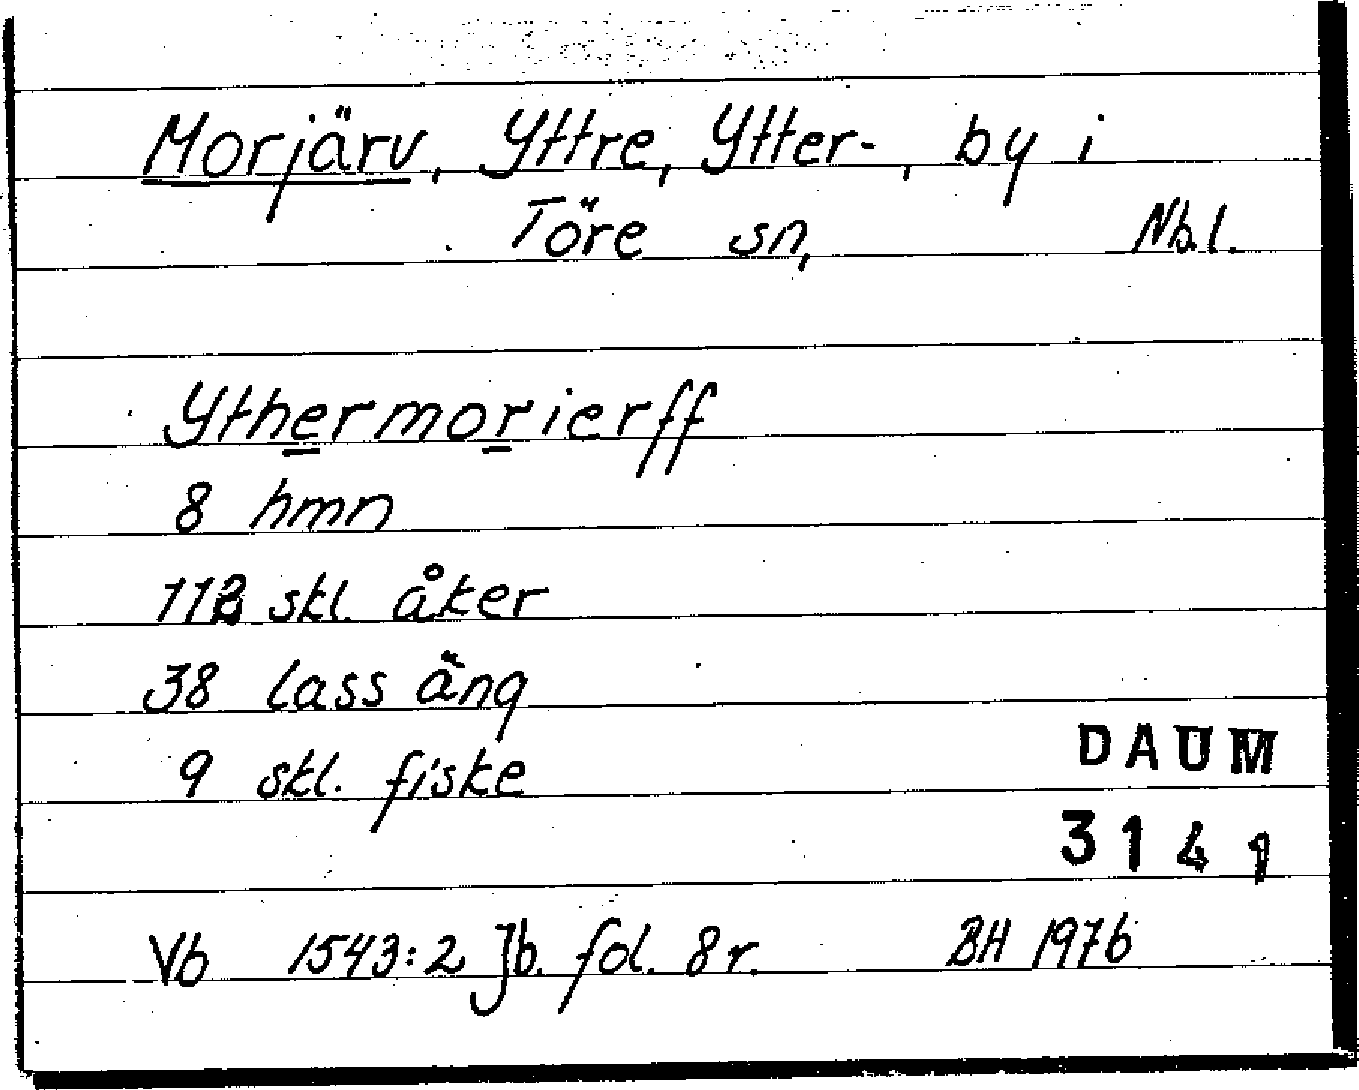 Morjärv, Yttre, Ytter-, by i
Töre sn, Nb.l.
Ythermorierff
8 hmn
skl. åker
38 lass äng
9 skl. fiske
DAUM
3141
Vb 1543:2 Jb. fol. 8r. BH 1976